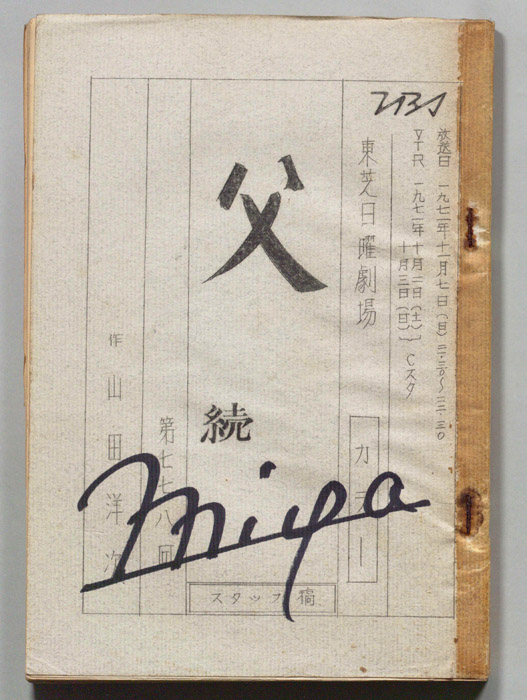 TBS
放送日 一九七一年十一月七日(日) 二一・三〇〜二二・三〇
VTR 一九七一年十月二日(土)
十月三日(日) Cスタ
東芝日曜劇場
カラー
父
続
スタッフ稿
第七七八回
作 山田洋次
miya